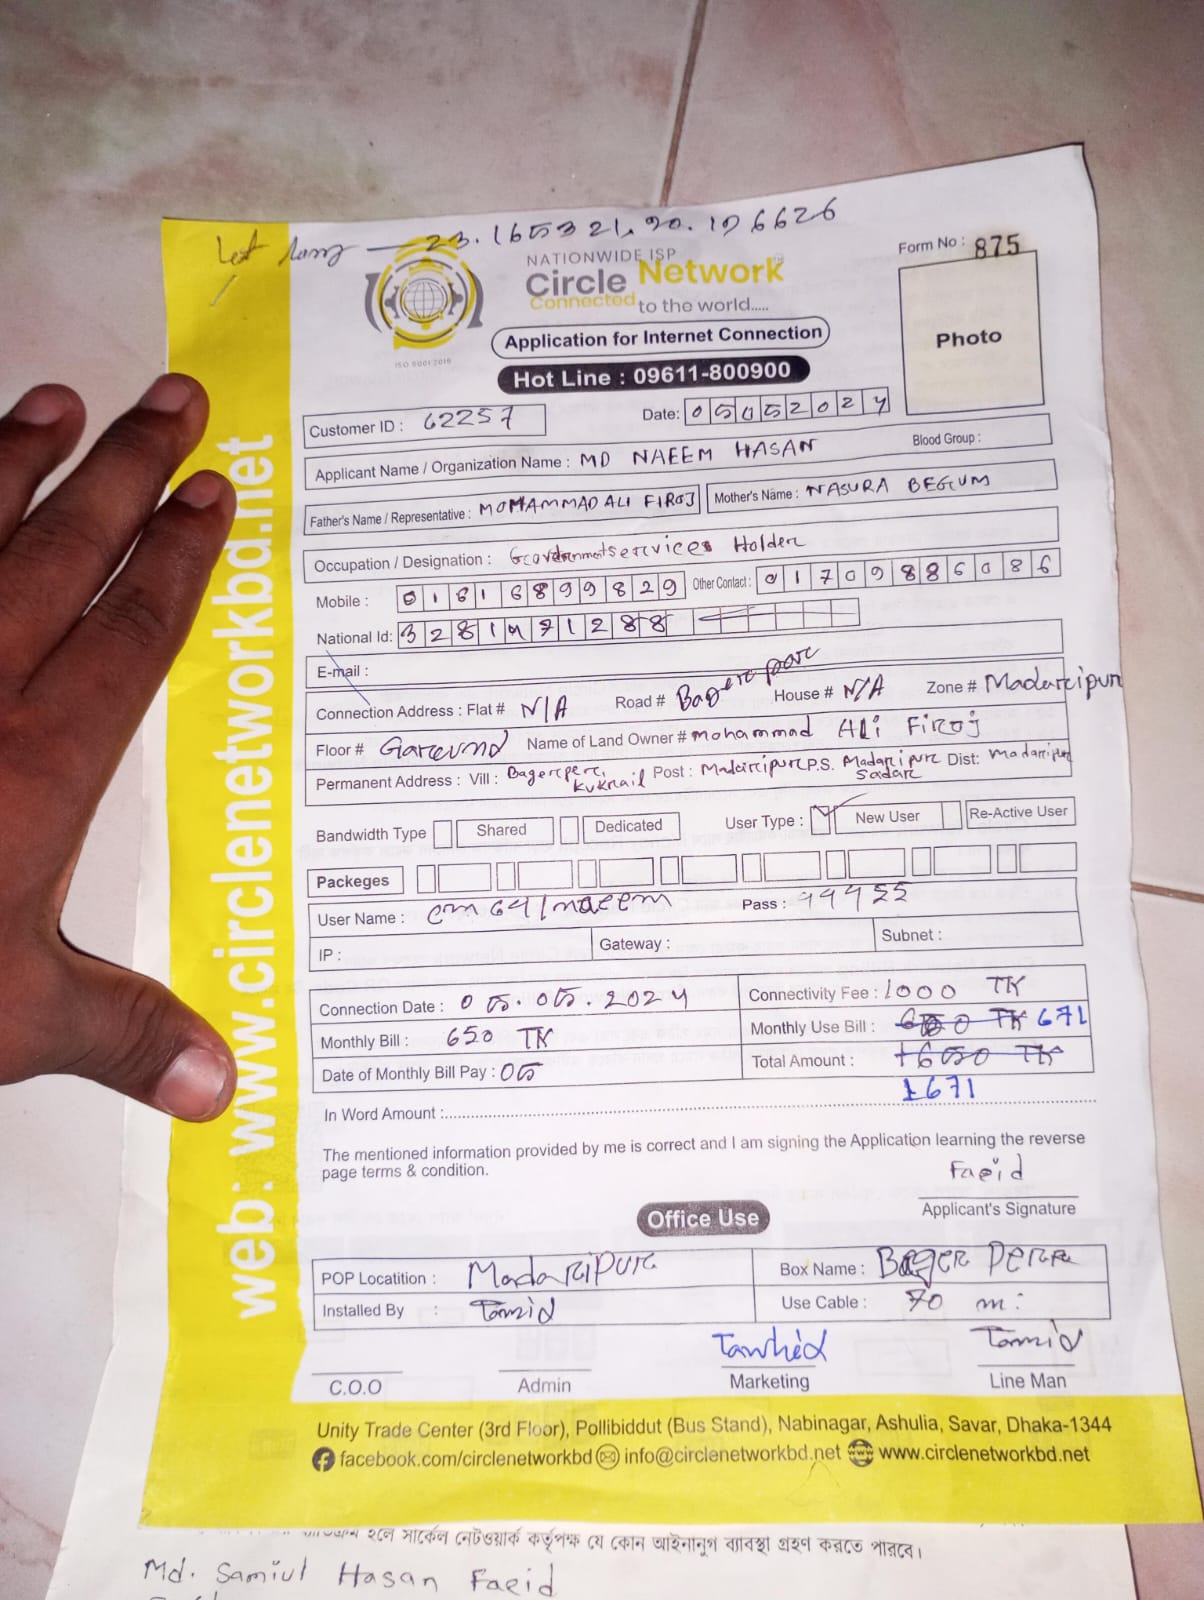 Let Long — 23.165321, 90.196626
NATIONWIDE ISP
Circle Network
Connected to the world.....
ISO 9001:2015
Form No : 875
Photo
Application for Internet Connection
Hot Line : 09611-800900
Customer ID : 62257
Date: 05052024
Applicant Name / Organization Name : MD NAEEM HASAN
Blood Group :
Father's Name / Representative : MOHAMMAD ALI FIROJ Mother's Name : NASURA BEGUM
Occupation / Designation : Holder
Mobile : 01616899829 Other Contact : 01709886086
National Id: 3281471288
E-mail :
Connection Address : Flat # N/A Road # House # N/A Zone # Madarcipur
Floor # Name of Land Owner # Mohammad Ali Firoj
Permanent Address : Vill : Post : P.S. Dist:
Bandwidth Type Shared Dedicated User Type : New User Re-Active User
Packeges
User Name : cm64/naeem Pass :
IP : Gateway : Subnet :
Connection Date : 05.05.2024 Connectivity Fee : 1000 TK
Monthly Bill : 650 TK Monthly Use Bill : 671
Date of Monthly Bill Pay : 05 Total Amount :
1671
In Word Amount :
The mentioned information provided by me is correct and I am signing the Application learning the reverse
page terms & condition.
Faeid
Applicant's Signature
Office Use
POP Locatition : Box Name :
Installed By : Tamid Use Cable : 70 m:
Tawhid Tamid
C.O.O Admin Marketing Line Man
Unity Trade Center (3rd Floor), Pollibiddut (Bus Stand), Nabinagar, Ashulia, Savar, Dhaka-1344
facebook.com/circlenetworkbd info@circlenetworkbd.net www.circlenetworkbd.net
web: www.circlenetworkbd.net
হলে সার্কেল নেটওয়ার্ক কর্তৃপক্ষ যে কোন আইনানুগ ব্যাবস্থা গ্রহণ করতে পারবে।
Md. Samiul Hasan Faeid